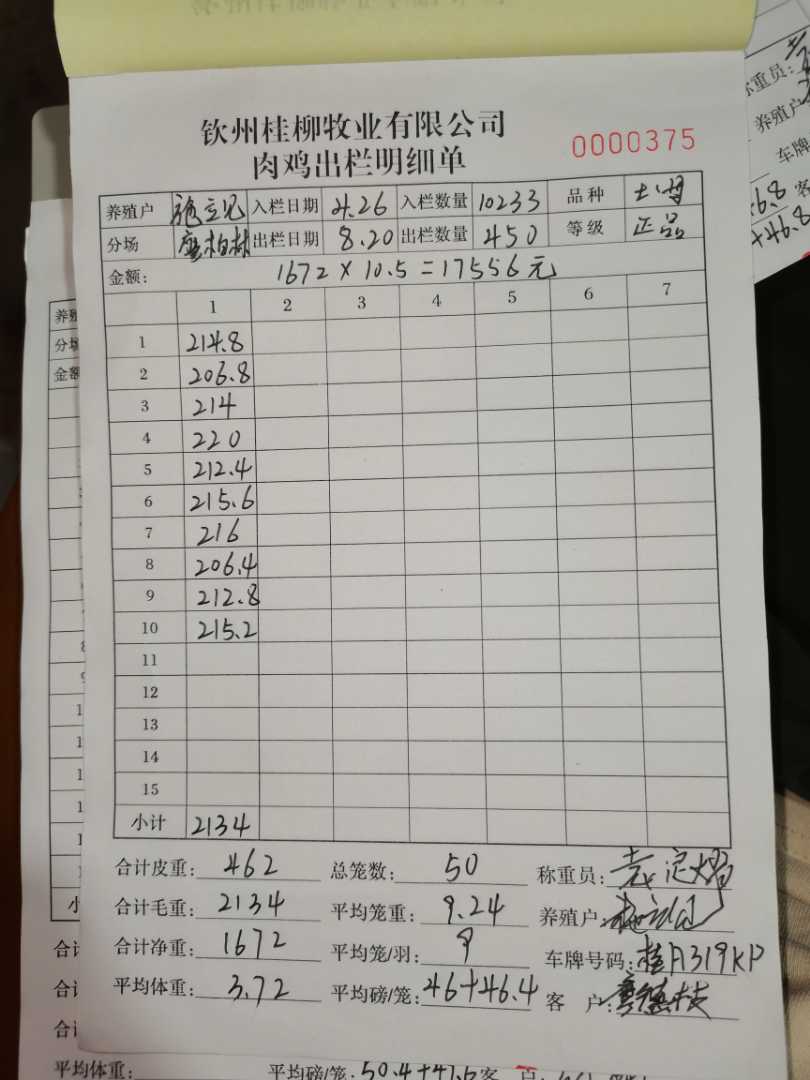 钦州桂柳牧业有限公司
肉鸡出栏明细单
0000375
养殖户 施立见 入栏日期 4.26 入栏数量 10233 品种 土
分场 出栏日期 8.20 出栏数量 450 等级 正品
金额: 1672 × 10.5 = 17556元
1 2 3 4 5 6 7
1 214.8
2 206.8
3 214
4 220
5 212.4
6 215.6
7 216
8 206.4
9 212.8
10 215.2
11
12
13
14
15
小计 2134
合计皮重: 462 总笼数: 50 称重员:
合计毛重: 2134 平均笼重: 9.24 养殖户:
合计净重: 1672 平均笼/羽: 9 车牌号码: 桂A319KP
平均体重: 3.72 平均磅/笼: 46+46.4 客 户:
平均体重: 平均磅/笼: 50.4+47.6 客
称重员:
养殖户
车牌
46.8 客
+46.8
养殖
分场
金额
合计
合计
合计